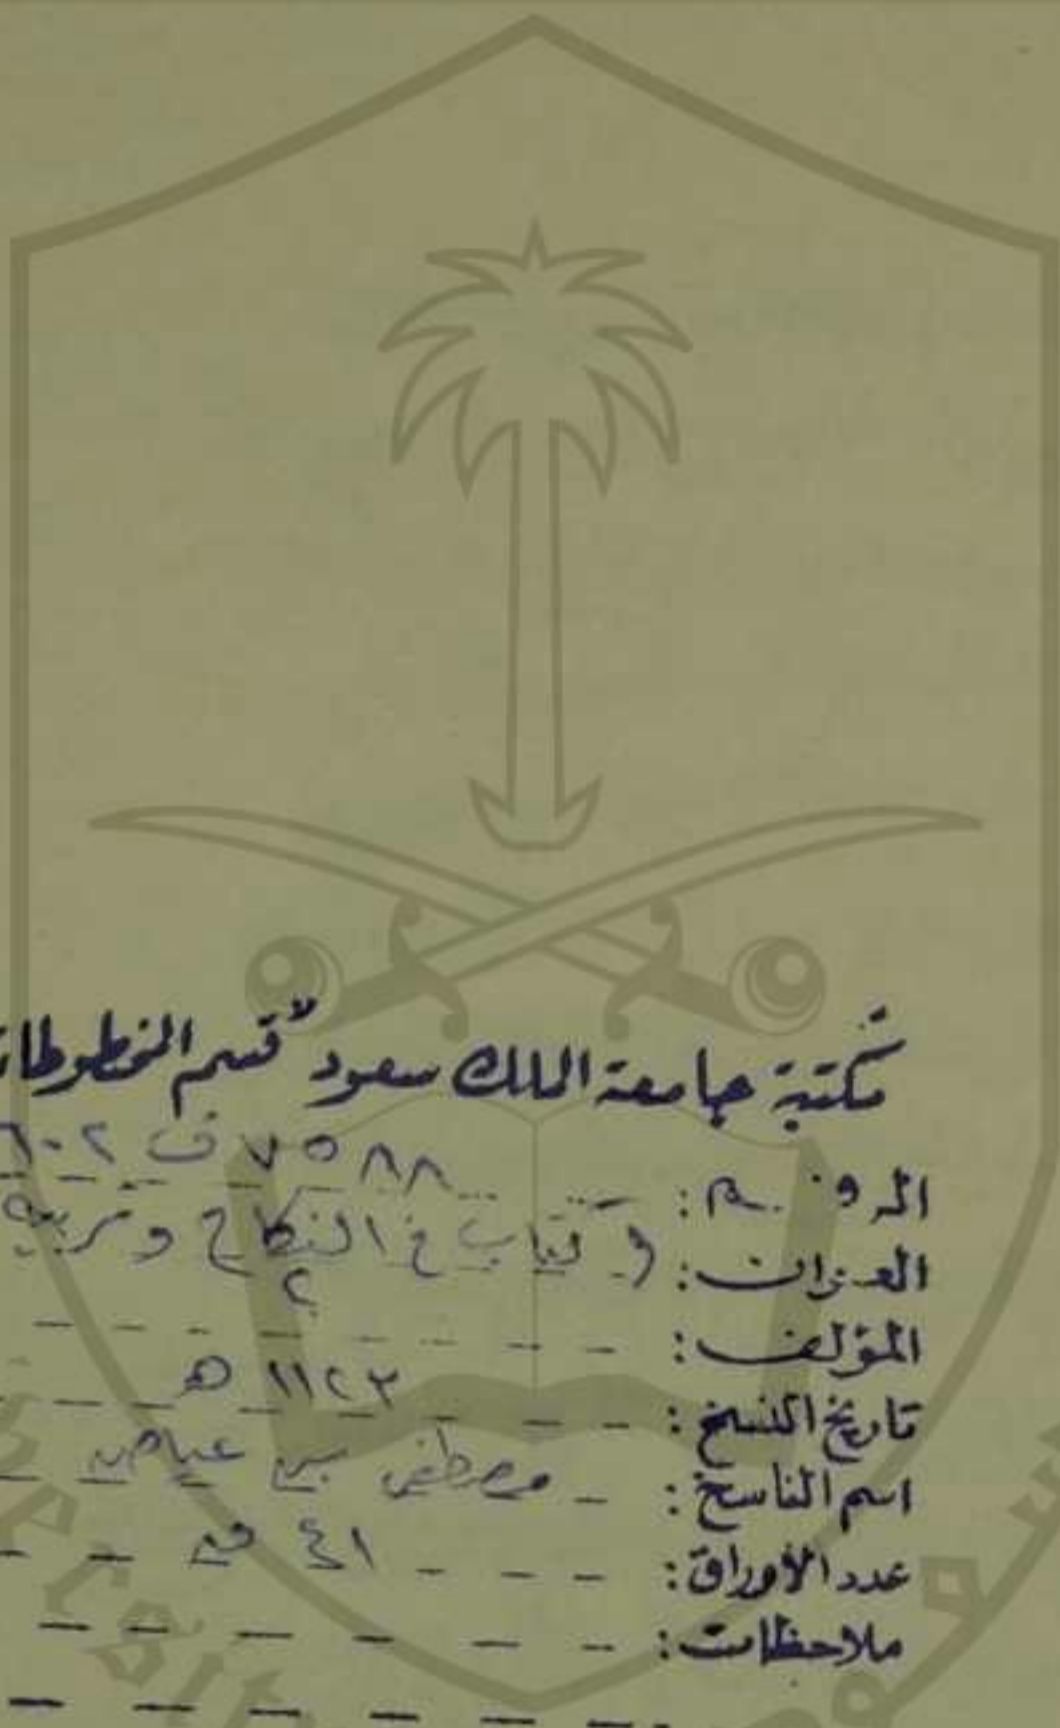 مكتبة جامعة الملك سعود "قسم المخطوطات
الرقم: ٧٥٨٨ ف ٦٠٢
العنوان: (كتاب في النكاح و
المؤلف: ؟
تاريخ النسخ: ١١٢٣ هـ
اسم الناسخ: مصطفى بن عياض
عدد الأوراق: ٤١ ق
ملاحظات: